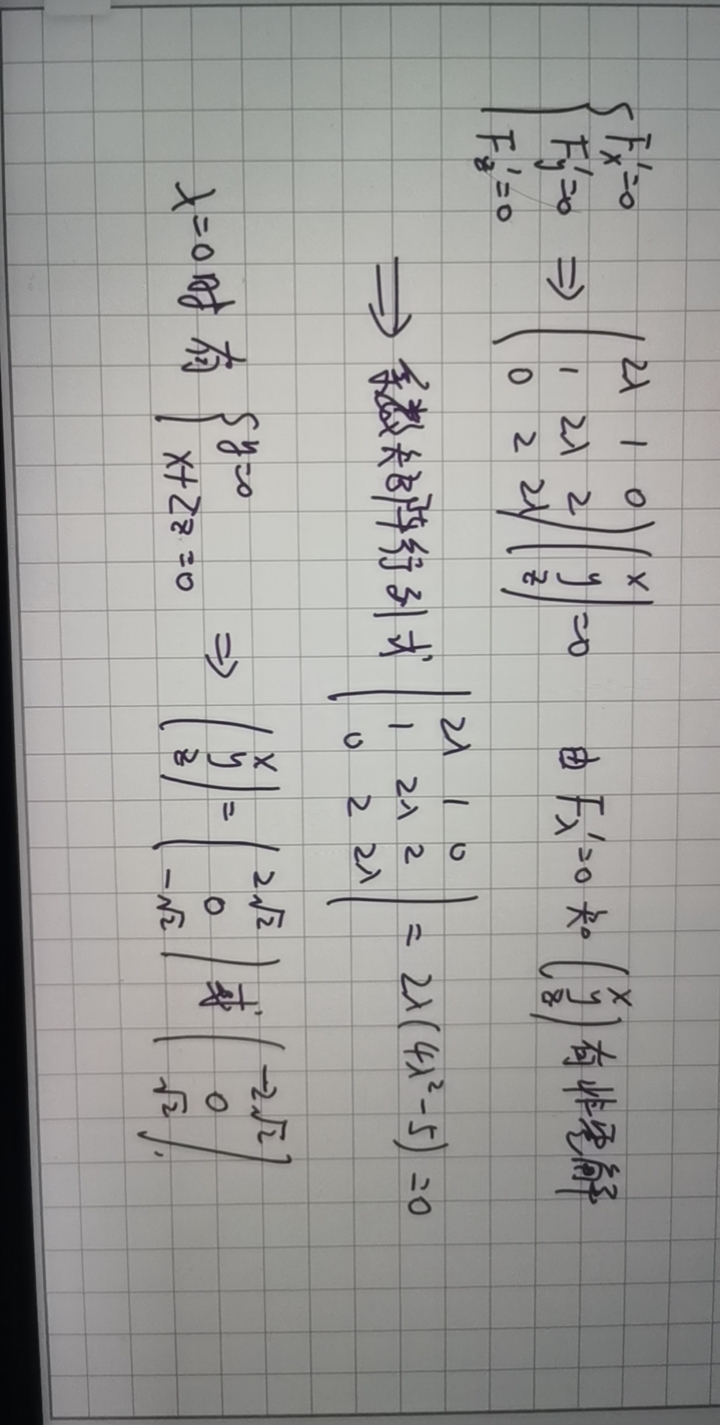 { F'x=0 F'y=0 F'z=0 ⇒ (2λ 1 0; 1 2λ 2; 0 2 2λ)(x; y; z)=0 由F'λ=0知(x; y; z)有非零解
⇒ 系数矩阵行列式 |2λ 1 0; 1 2λ 2; 0 2 2λ| = 2λ(4λ²-5)=0
λ=0时有 { y=0 x+2z=0 ⇒ (x; y; z)=(2√2; 0; -√2)或(-2√2; 0; √2),